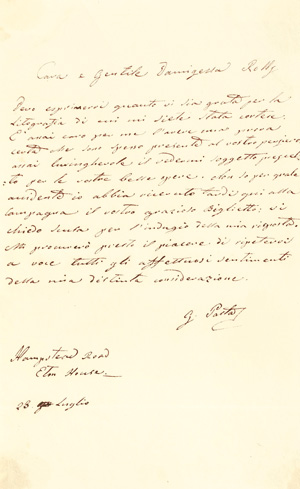 Cara e Gentile Damigella
Devo esprimervi quanto vi sia grata per la
Litografia di cui mi siete stata cortese.
E' assai caro per me l'avere una prova
certa che sono spesso presente al vostro pensiero
assai lusinghevole il vedermi soggetto prescel-
to per le vostre opere. Non so per quale
accidente io abbia ricevuto tardi qui alla
Campagna il vostro grazioso Biglietto; vi
chiedo scusa per l'indugio della mia risposta.
Mi procurerò presto il piacere di ripetervi
a voce tutti gli affettuosi sentimenti
della mia distinta considerazione.
G. Pasta
Hampstead Road
Eton House
23 Luglio